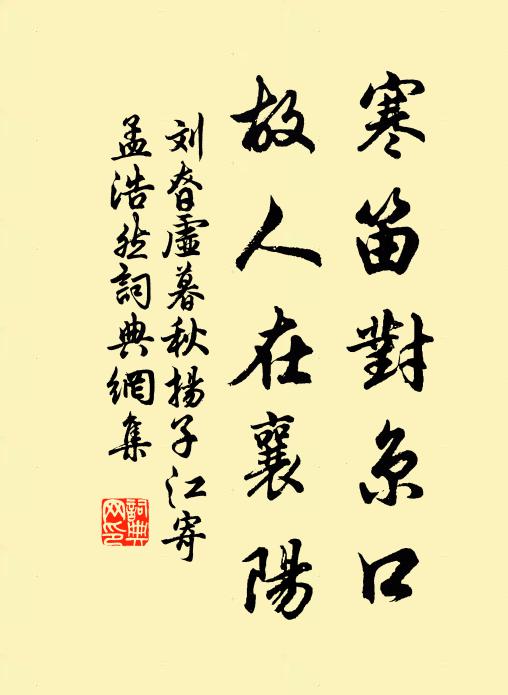 寒笛對京口
故人在襄陽
刘眘虛暮秋揚子江寄
孟浩然詞典網集
詞典
网印